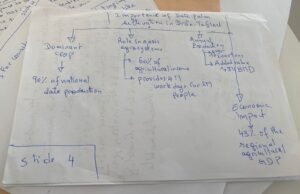 Importance of Date palm
cultivation in Drâa-Tafilalet
Dominant
crop
90% of national
date production
Role in oasis
agrosystems
60% of
agricultural income
provides
work days for
people
Annual
Production
Added value
Economic
impact
43% of the
regional
agricultural
GDP
Slide 4